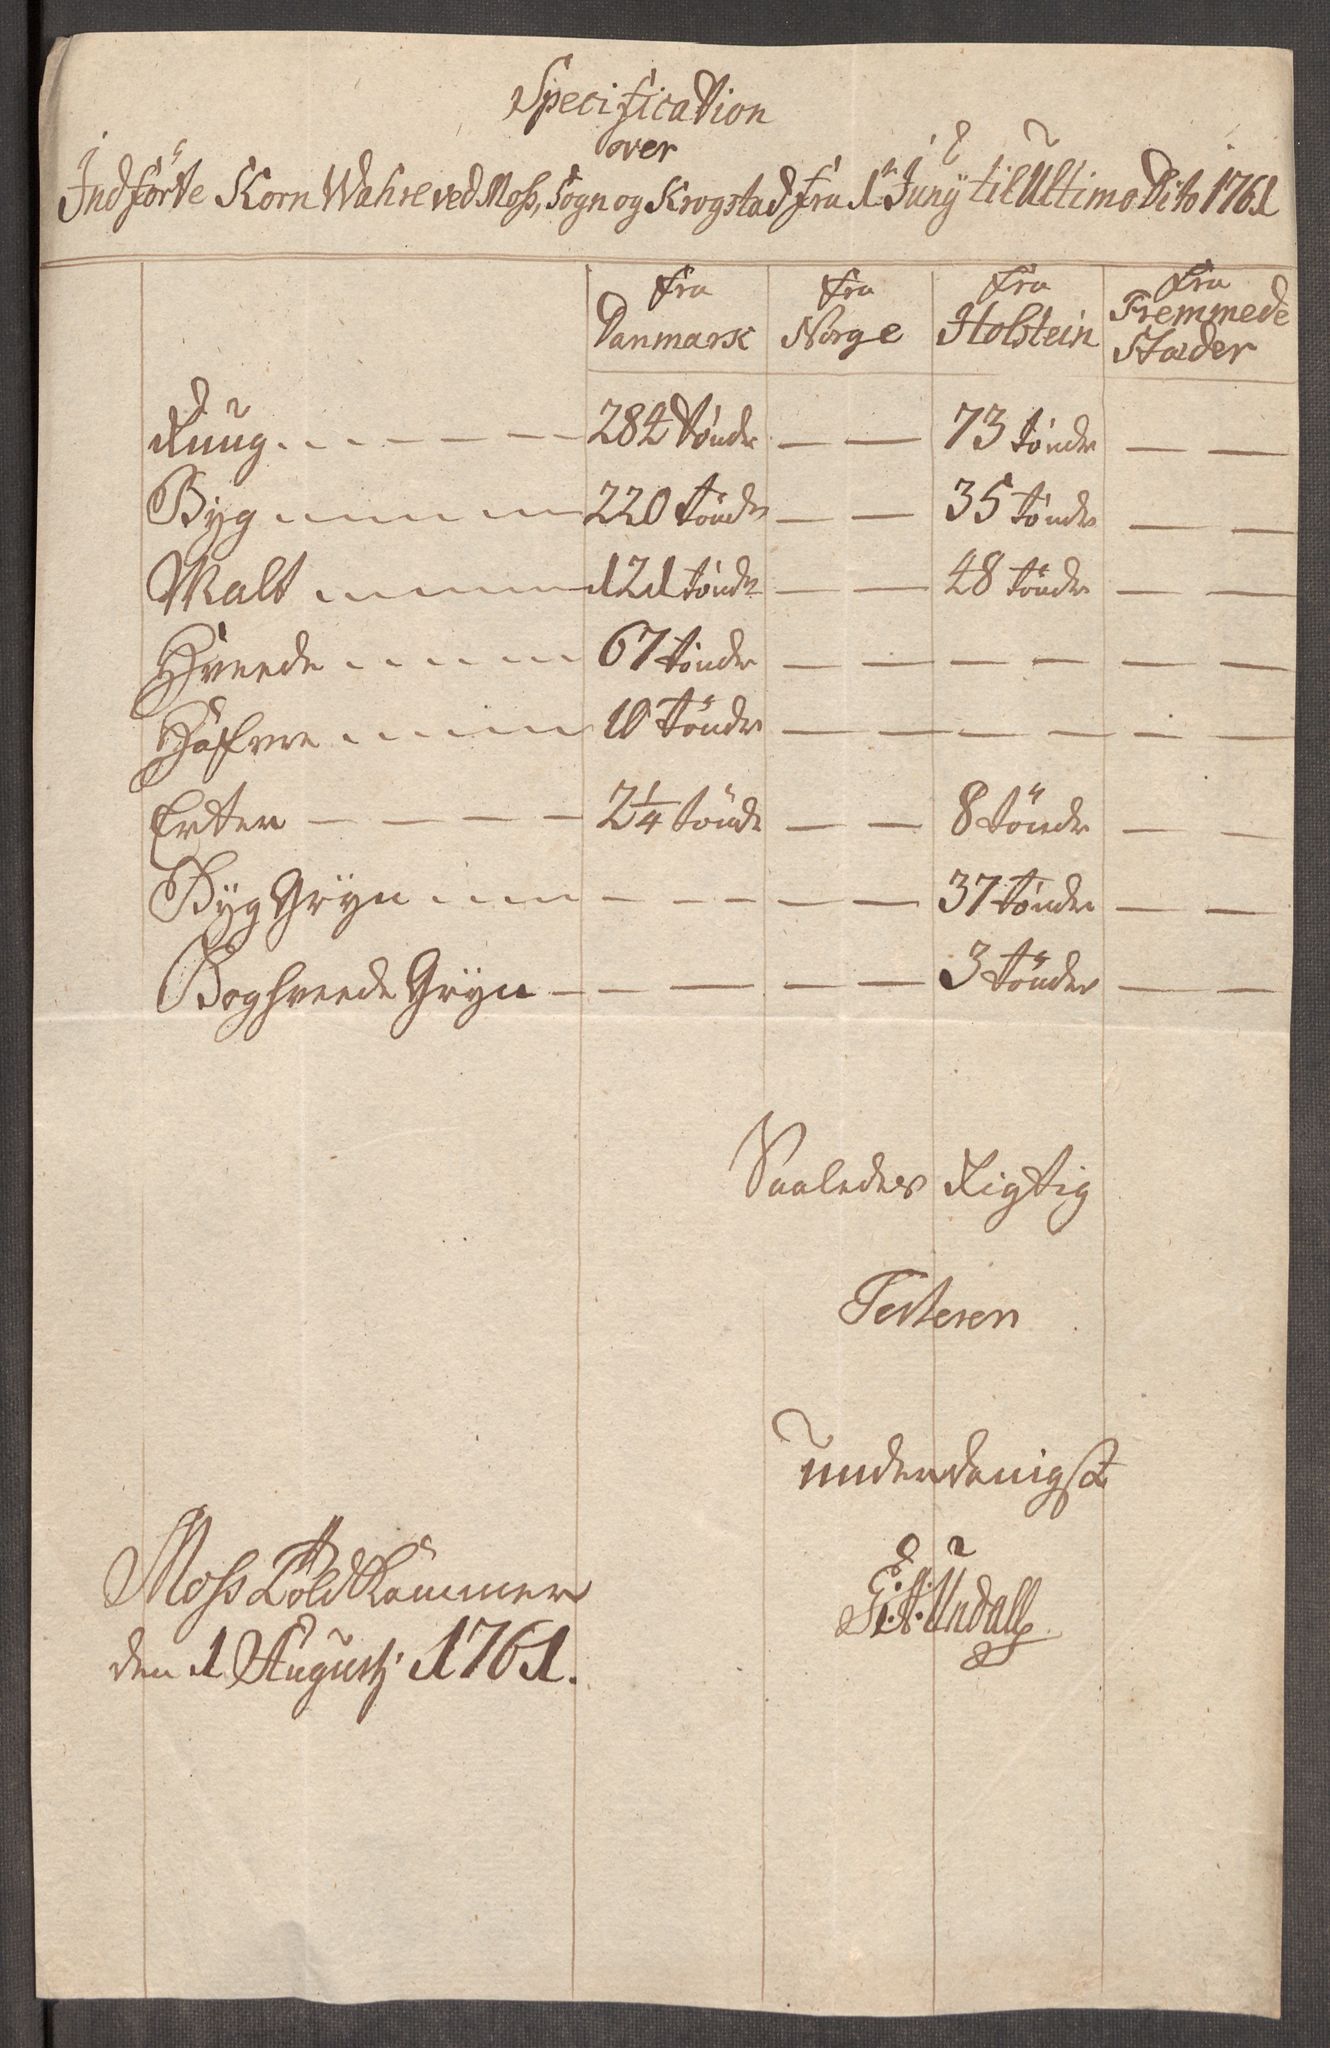 Specification
over
Indförte Korn Wahre ved Moss, Sogn og Krogstad fra 1te Juny til Ultimo Dito 1761
fra Danmark | fra Norge | fra Holstein | fra Fremmede Stæder
Ruug 284 Tønder — — 73 tønder — —
Byg 220 tønder — — 35 tønder — —
Malt 121 tønder — — 48 tønder — —
Hveede 67 tønder — — — — — —
Hafvre 10 Tønder — — — — — —
Erter 2 1/4 tønde — — 8 tønder — —
Byg Gryn — — — — 37 tønder — —
Boghveede Gryn — — — — 3 tønder — —
Saaledes Rigtig
Testerer
underdanigst
Moss Told Kammer
den 1 Augustj 1761.
Undall